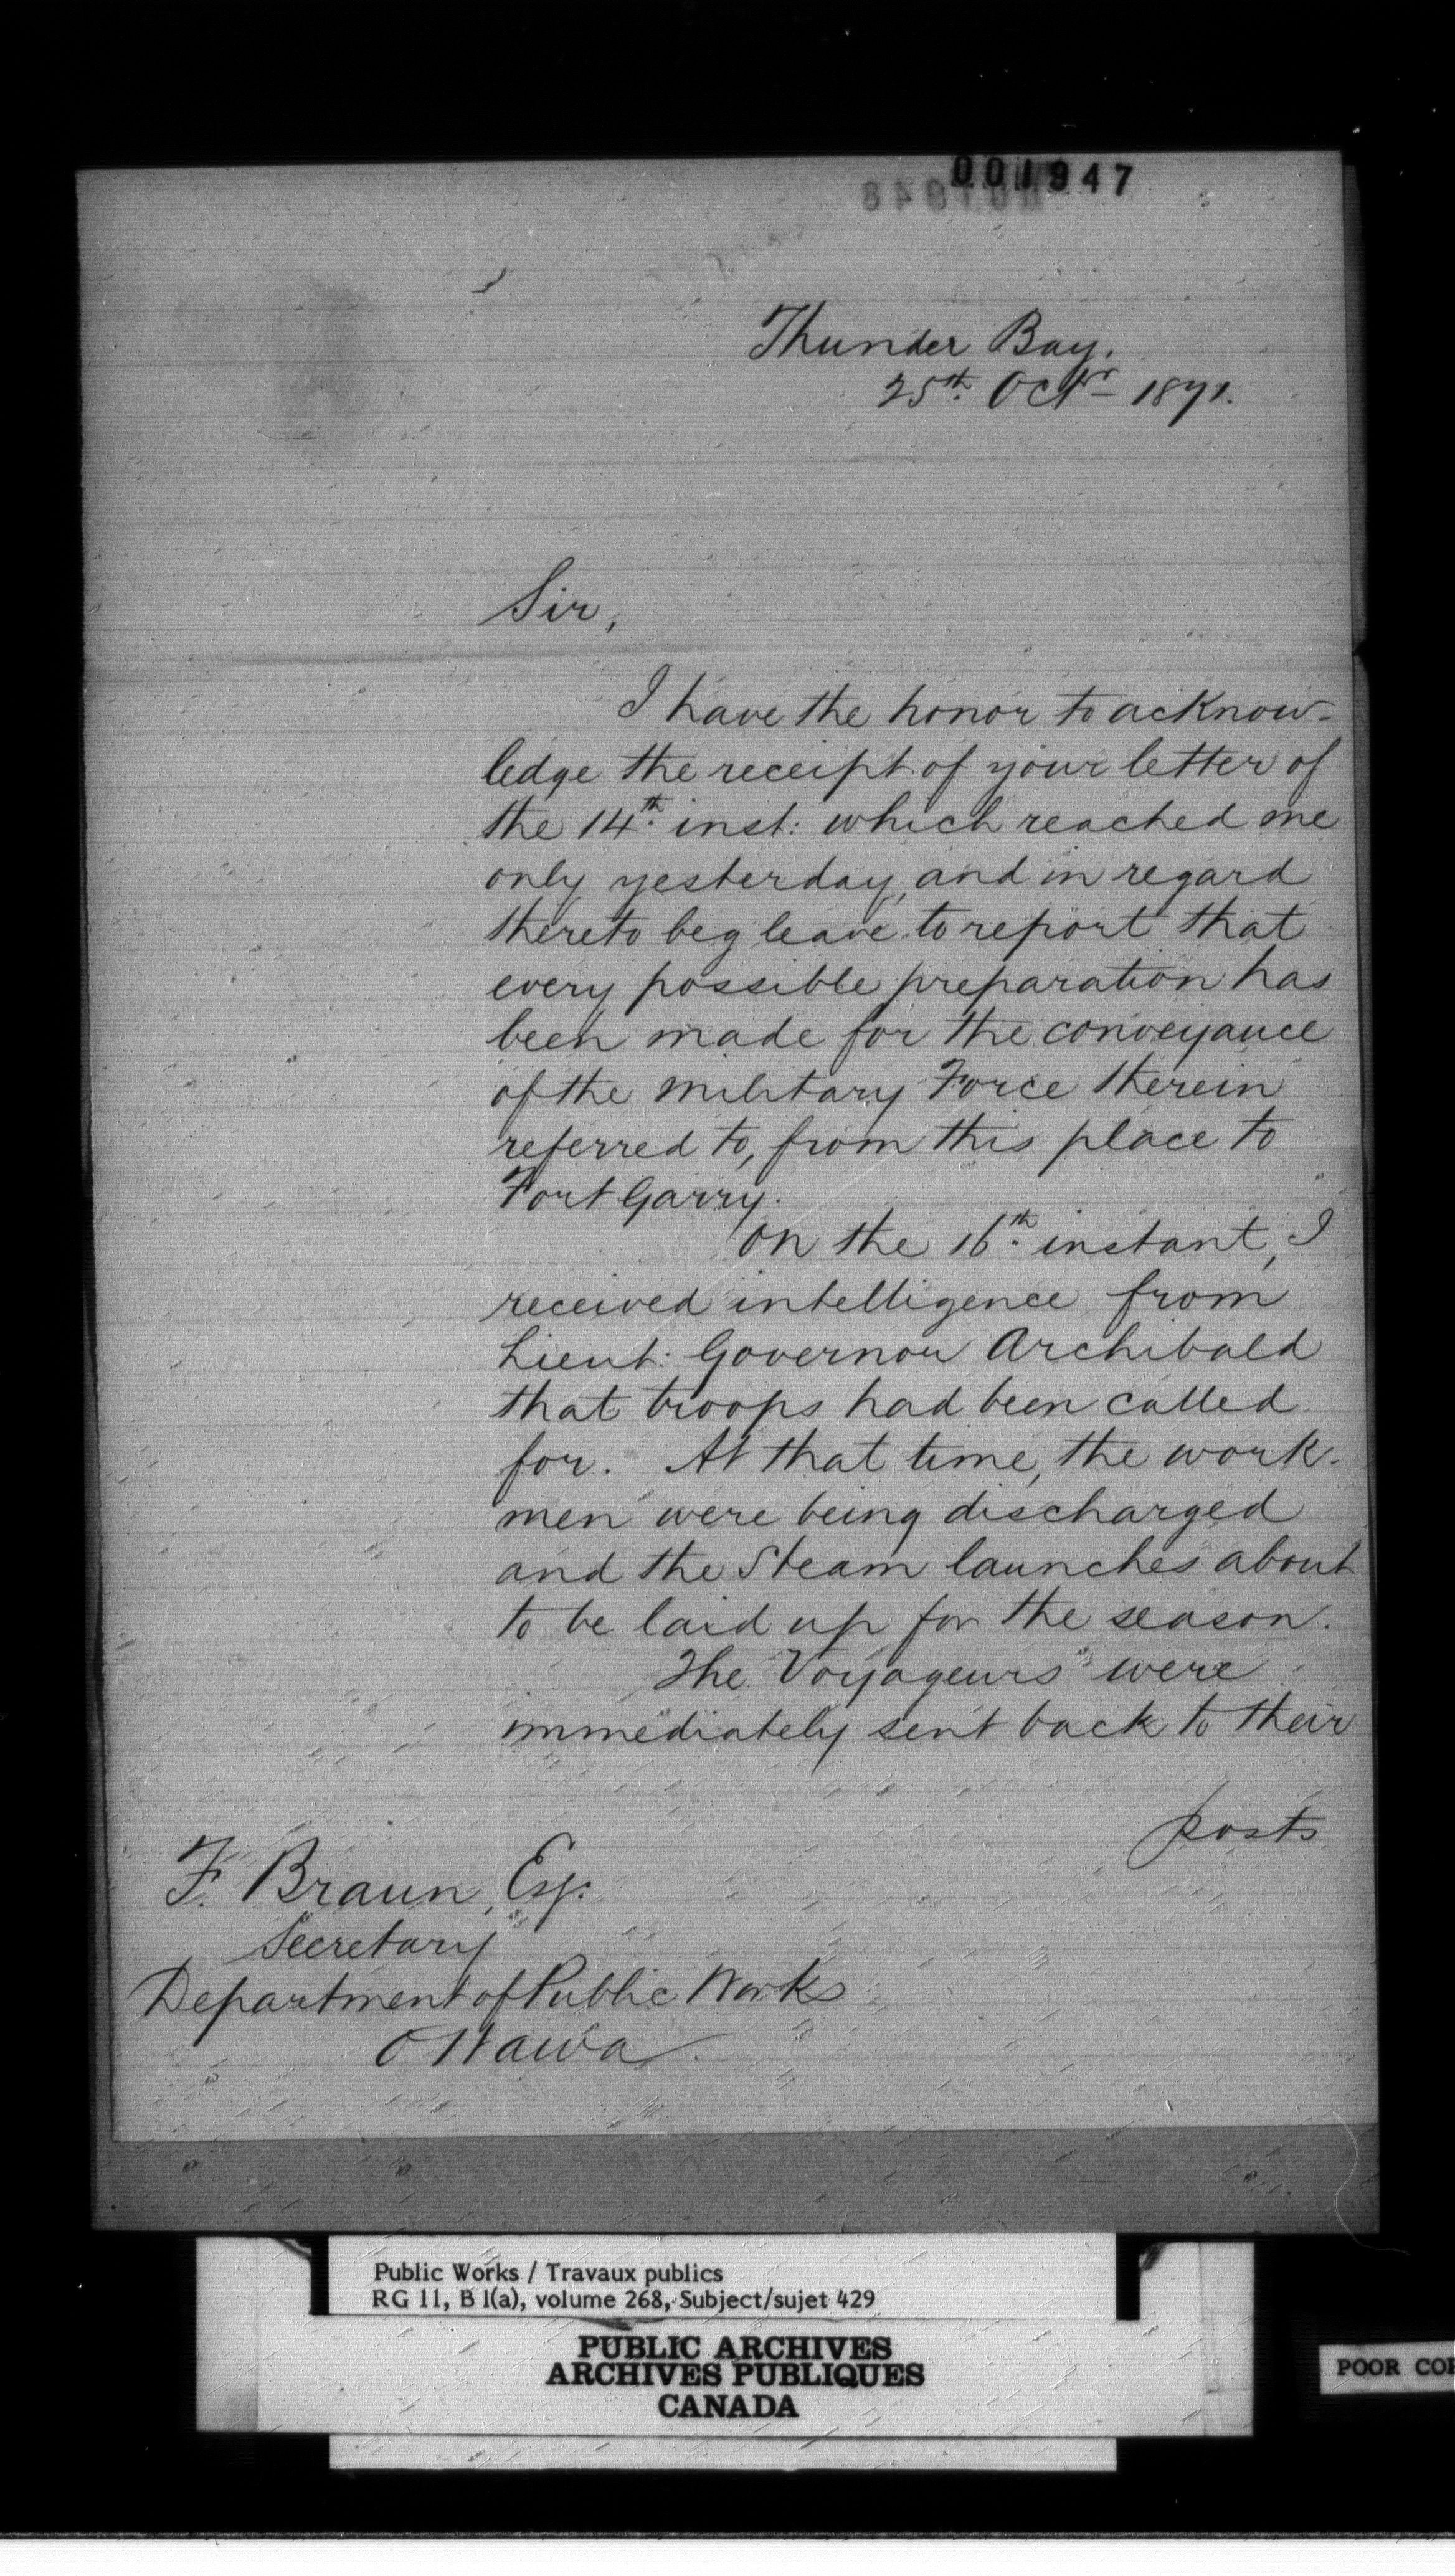 001947
Thunder Bay.
25th. Octr 1871.
Sir,
I have the honor to acknow-
ledge the receipt of your letter of
the 14th. inst: which reached me
only yesterday, and in regard
thereto beg leave to report that
every possible preparation has
been made for the conveyance
of the Military Force therein
referred to, from this place to
Fort Garry.
On the 16th. instant, I
received intelligence from
Lieut: Governor Archibald
that troops had been called
for. At that time, the work-
men were being discharged
and the Steam launches about
to be laid up for the season.
The Voyageurs were
immediately sent back to their
posts
F. Braun, Esq.
Secretary
Department of Public Works
Ottawa.
Public Works / Travaux publics
RG 11, B 1(a), volume 268, Subject/sujet 429
PUBLIC ARCHIVES
ARCHIVES PUBLIQUES
CANADA
POOR COP